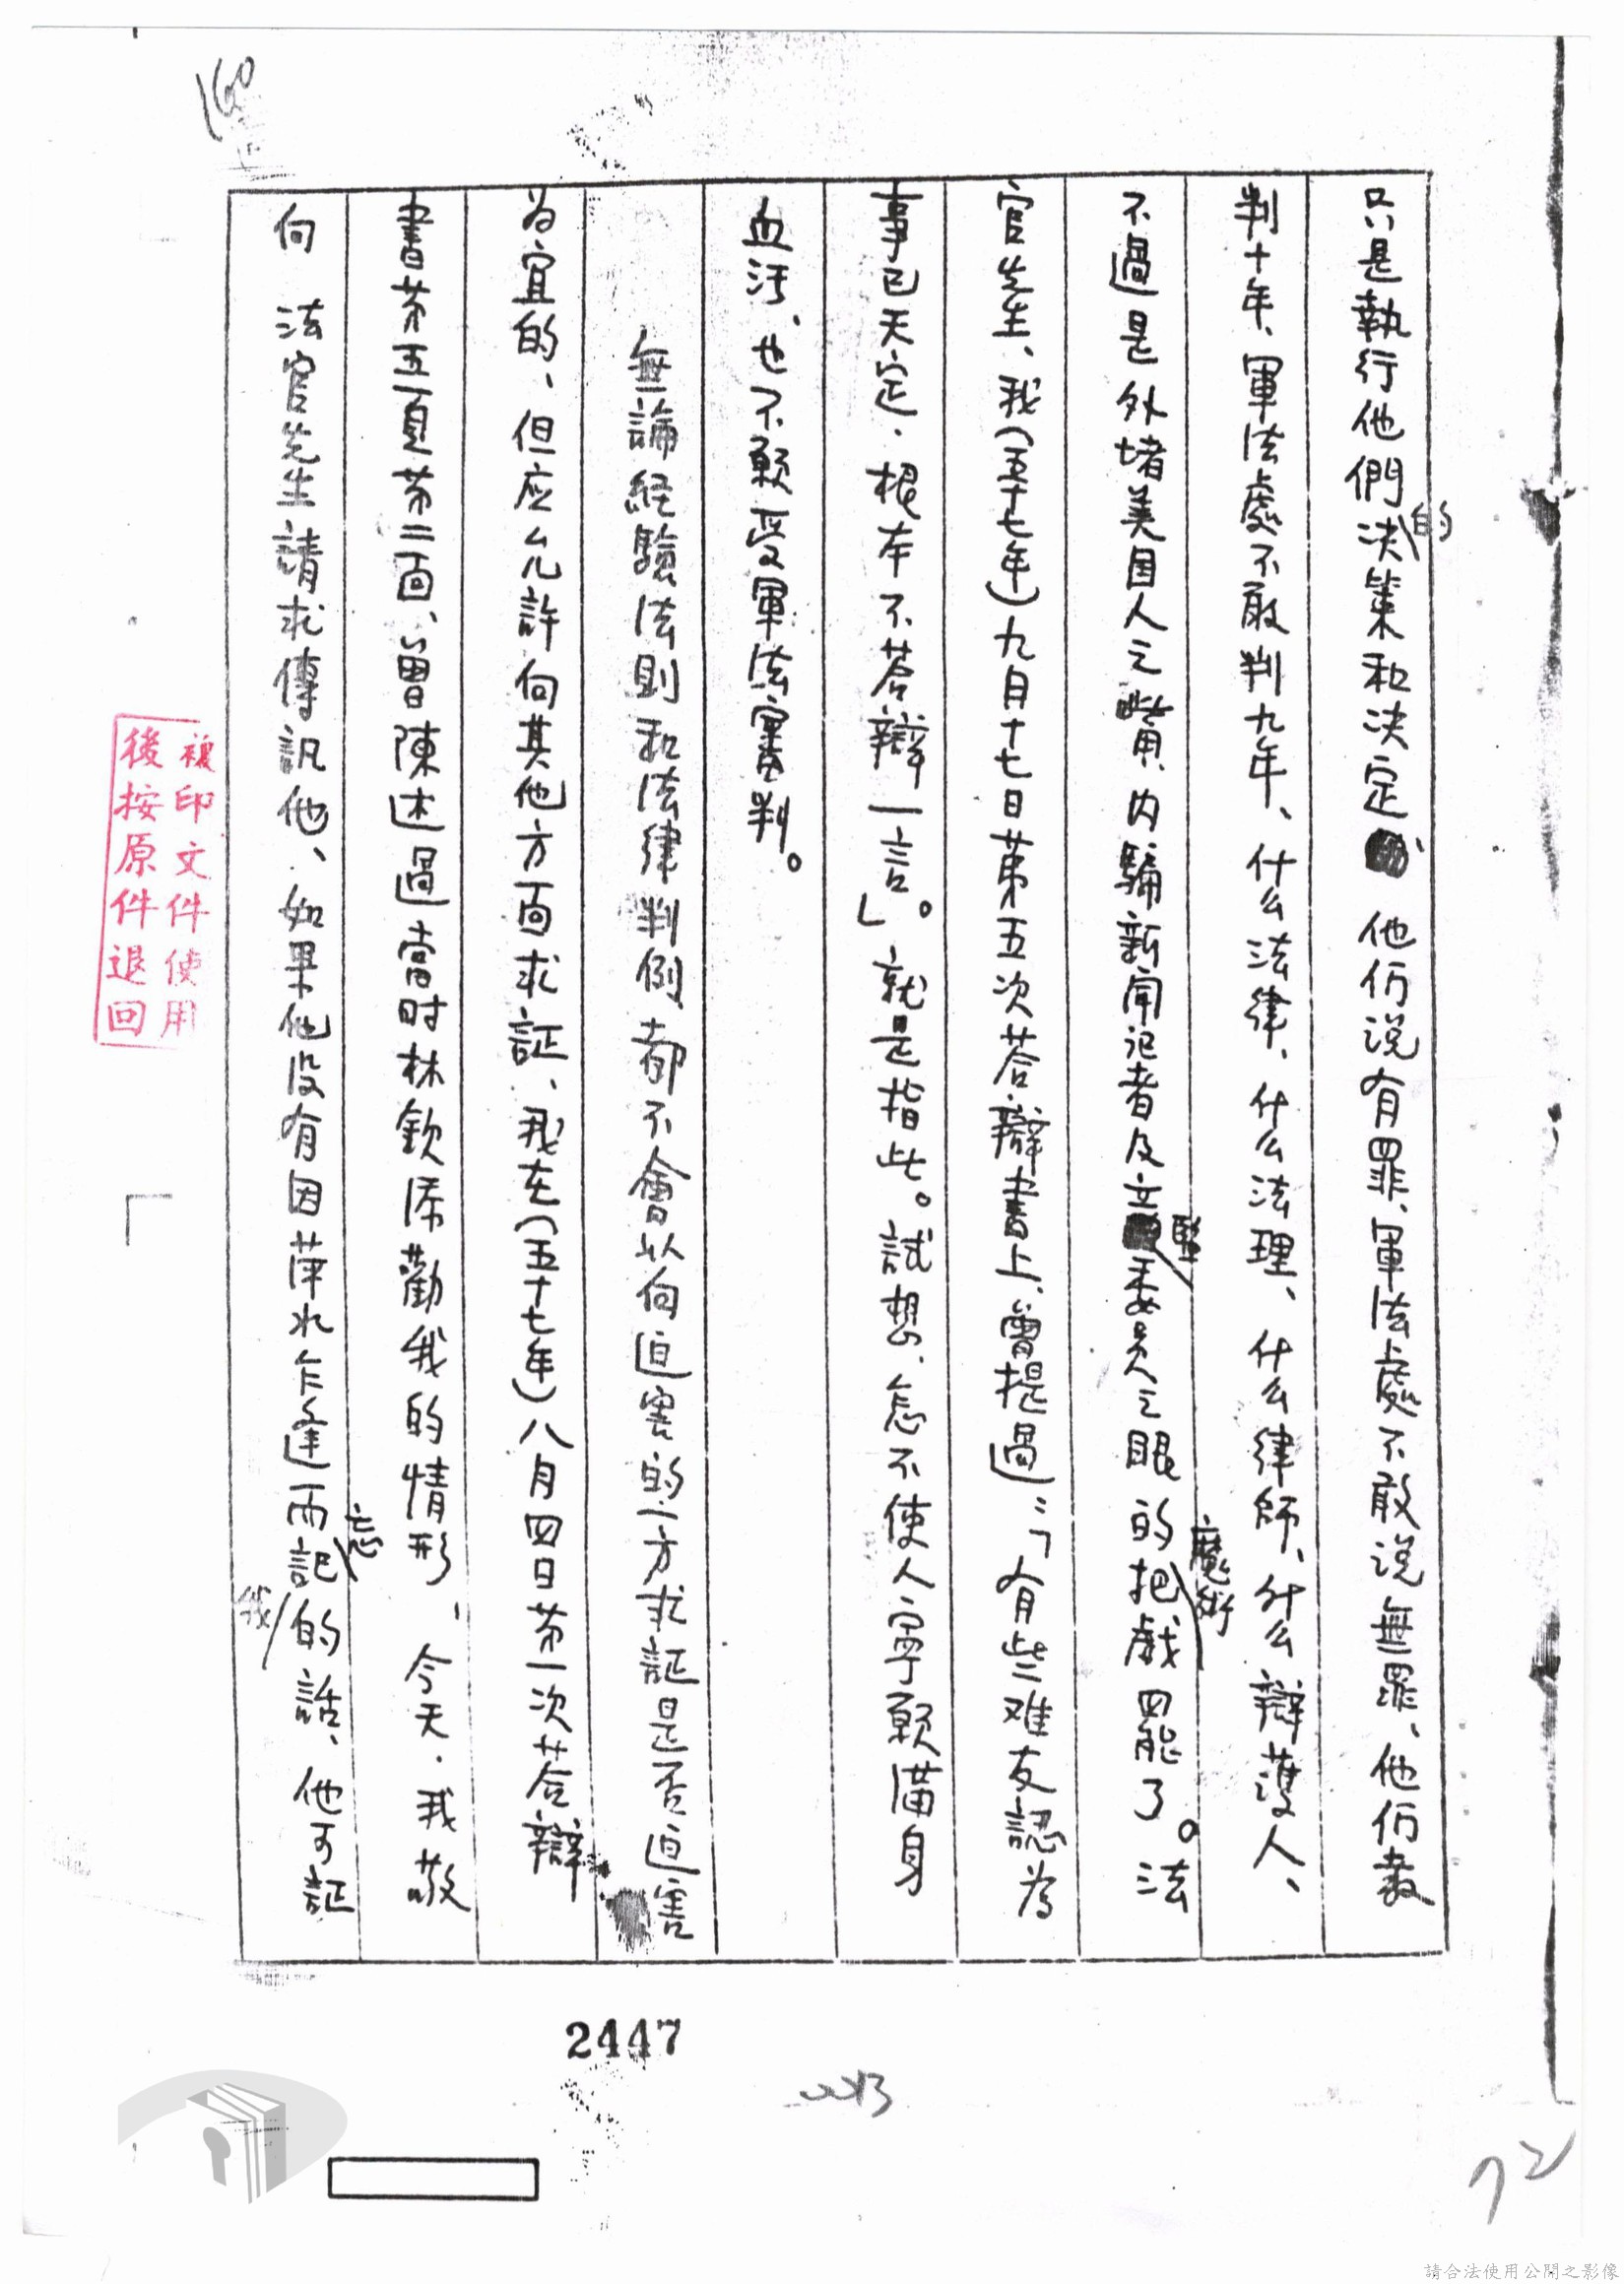 160
只是執行他們的決策和決定 他们说有罪、軍法處不敢说無罪、他们要
判十年、軍法處不敢判九年、什么法律、什么法理、什么律師、什么辯護人、
不過是外堵美国人之嘴、内騙新闻记者及立監委员之眼的把戲魔術罷了。法
官先生、我(五十七年)九月十七日第五次荅辯書上、曾提過:「有些难友認為
事已天定、根本不荅辯一言」。就是指此。試想、怎不使人寧願满身
血汚、也不願受軍法審判。
無論経驗法則和法律判例、都不會以向迫害的一方求証是否迫害
为宜的、但应允許向其他方面求証、我在(五十七年)八月四日苐一次荅辯
書苐五頁苐二面、曾陳述過當时林欽添勸我的情形、今天、我敬
向 法官先生請求傳訊他、如果他没有因萍水乍逢而忘記我的話、他可証
複印文件使用
後按原件退回
2447
72
請合法使用公開之影像